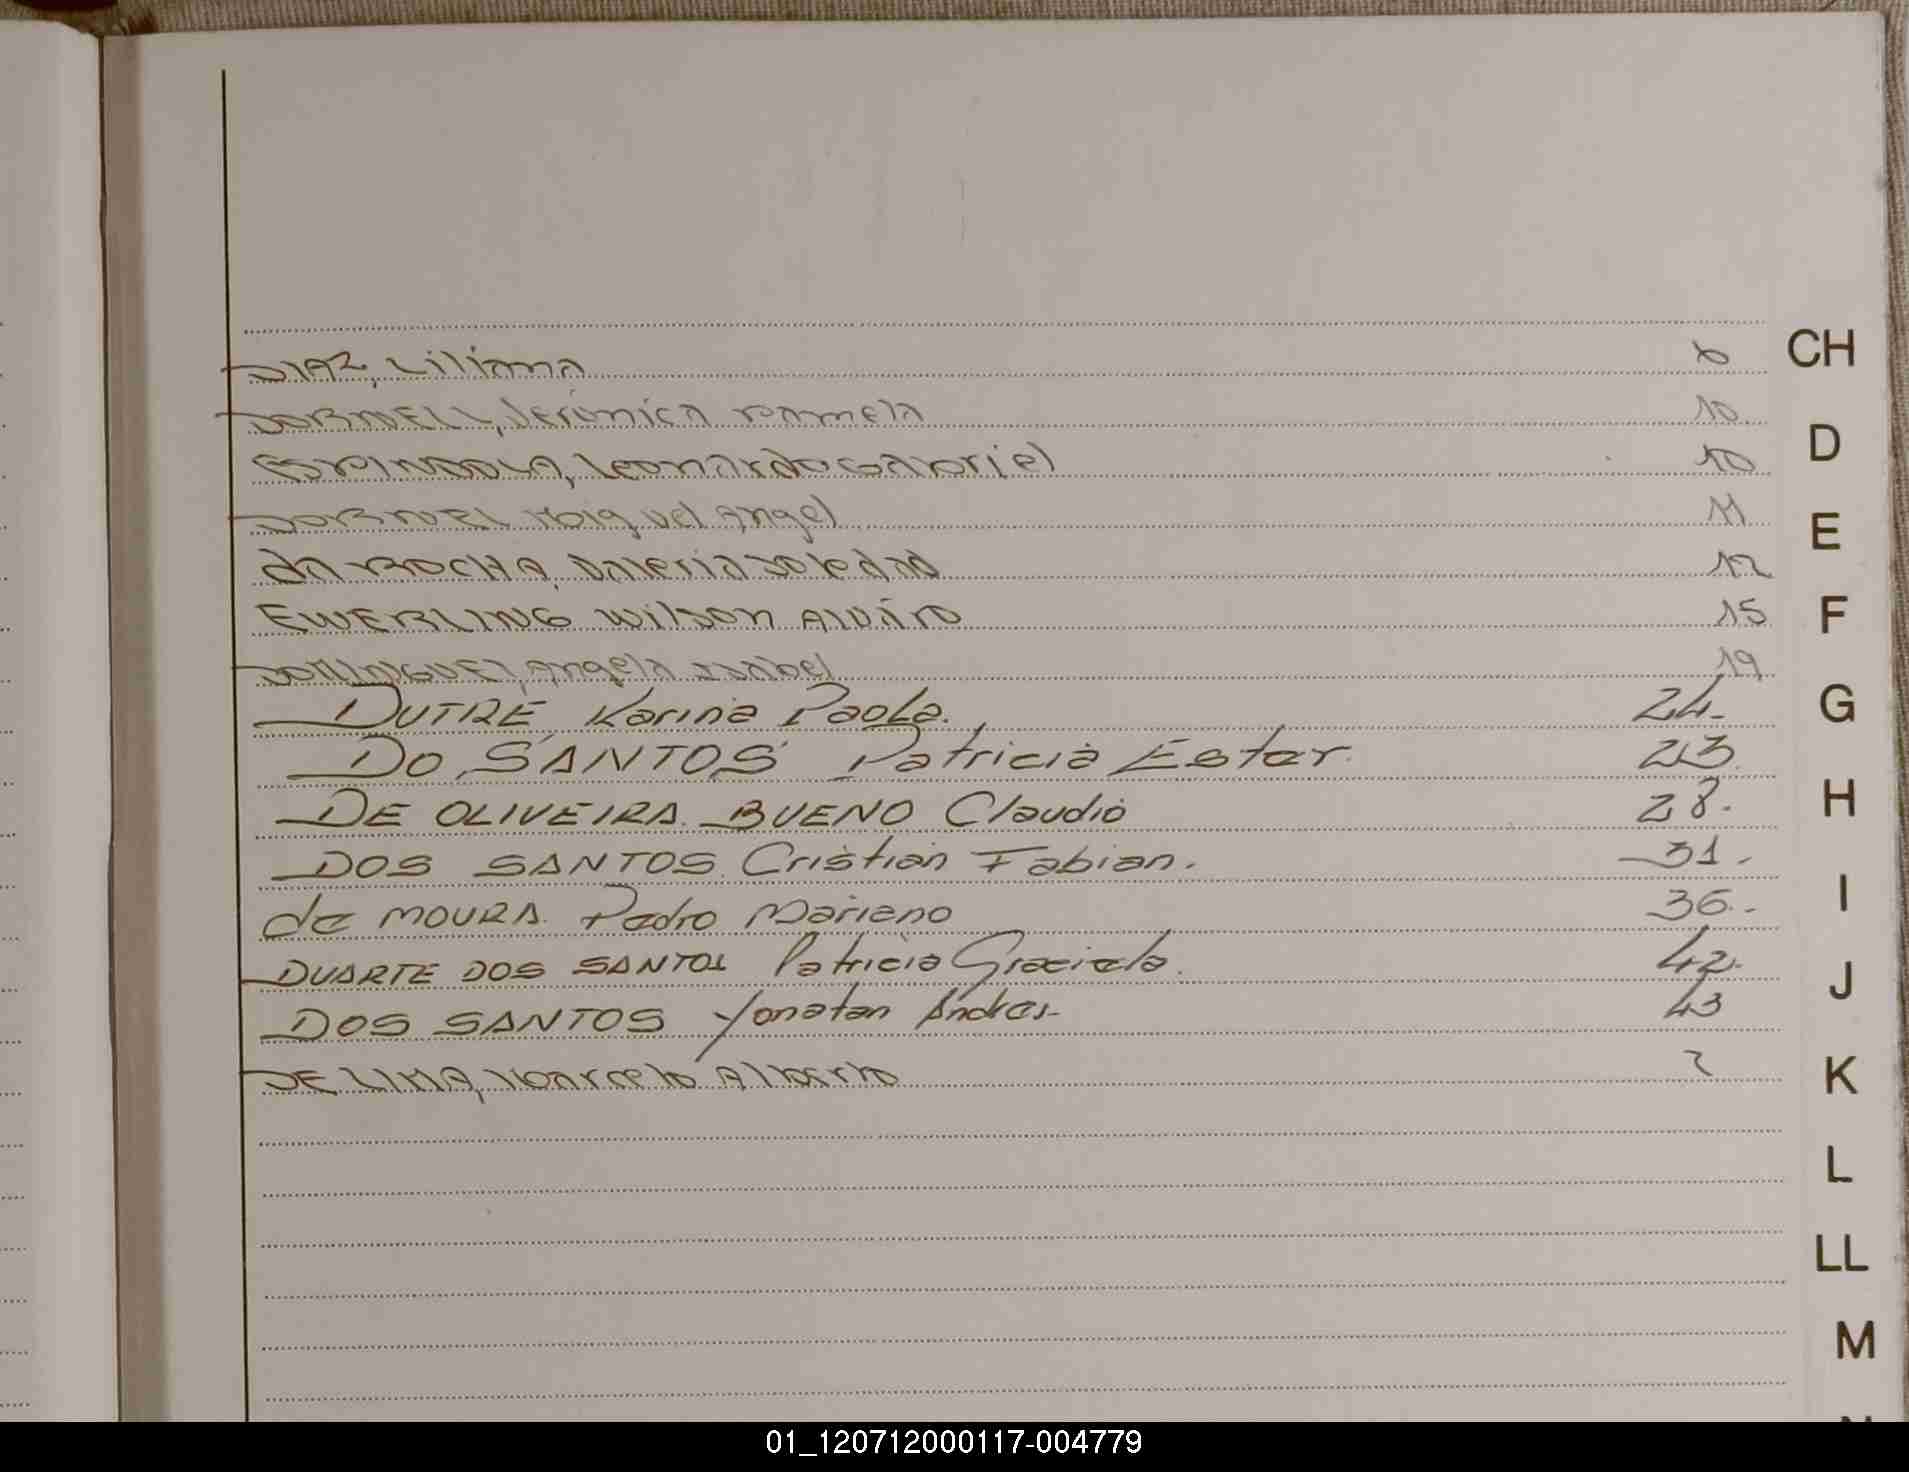 DIAZ, Liliana 6
DORNELL, Verónica Pamela 10
ESPINDOLA, Leonardo Gabriel 10
DORNEL Miguel Angel 11
da ROCHA, Valeria Soledad 12
EWERLING Wilson Alváro 15
DOMINGUEZ, Angela Isabel 19
DUTRE Karina Paola. 24.
DO SANTOS Patricia Ester. 23.
DE OLIVEIRA BUENO Claudio 28.
DOS SANTOS Cristian Fabian. 31.
de MOURA Pedro Mariano 36.
DUARTE DOS SANTOS Patricia Graciela. 42.
DOS SANTOS Yonatan Andres. 43
DE LIMA, Marcelo Alberto 2
CH
D
E
F
G
H
I
J
K
L
LL
M
01_120712000117-004779